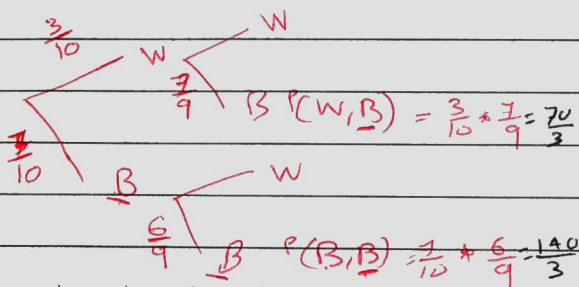 3/10 W W
7/9 B P(W,B) = 3/10 * 7/9 = 70/3
7/10 B W
6/9 B P(B,B) = 7/10 * 6/9 = 140/3